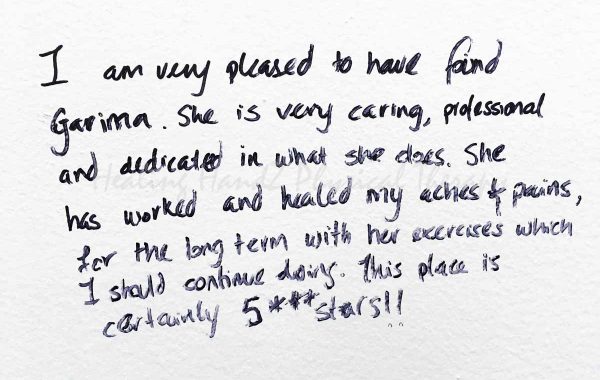 I am very pleased to have found
Garima. She is very caring, professional
and dedicated in what she does. She
Healing Hands Physical Therapy
has worked and healed my aches & pains,
for the long term with her exercises which
I should continue doing. This place is
certainly 5 *** stars!!